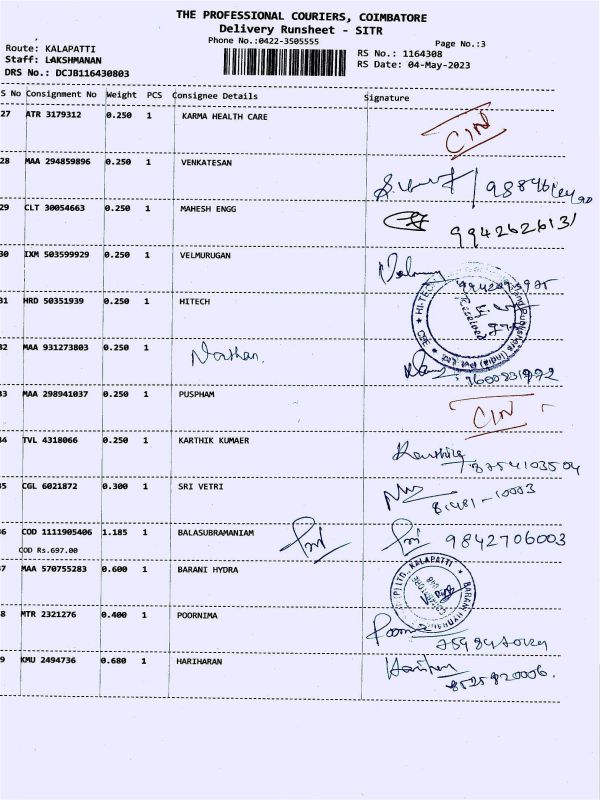 THE PROFESSIONAL COURIERS, COIMBATORE
Delivery Runsheet - SITR
Phone No.:0422-3505555
Page No.:3
Route: KALAPATTI
Staff: LAKSHMANAN
DRS No.: DCJB116430803
RS No.: 1164308
RS Date: 04-May-2023
S No Consignment No Weight PCS Consignee Details Signature
27 ATR 3179312 0.250 1 KARMA HEALTH CARE
28 MAA 294859896 0.250 1 VENKATESAN
29 CLT 30054663 0.250 1 MAHESH ENGG 9942626131
30 IXM 503599929 0.250 1 VELMURUGAN
31 HRD 50351939 0.250 1 HITECH
Received
32 MAA 931273803 0.250 1 Nathan.
33 MAA 298941037 0.250 1 PUSPHAM
34 TVL 4318066 0.250 1 KARTHIK KUMAER Karthik 8754103504
35 CGL 6021872 0.300 1 SRI VETRI 81481-10003
36 COD 1111905406 1.185 1 BALASUBRAMANIAM Sri Sri 9842706003
COD Rs.697.00
37 MAA 570755283 0.600 1 BARANI HYDRA
(P) LTD., KALAPATTI
38 MTR 2321276 0.400 1 POORNIMA
39 KMU 2494736 0.680 1 HARIHARAN Hariharan 8525820006.